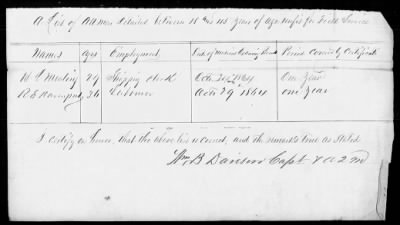 A List of names detailed between 18 and 45 year of age unfit for Field Service
Names Ages Employment Date of Medical Examining Board Period Covered by Certificate
29 Shipping Clerk Octr 1864 One Year
R E Davenport 36 Octr 29th 1864 One Year
I certify on honor, that the above list is correct, and the
Wm B Davison Capt & A Q M